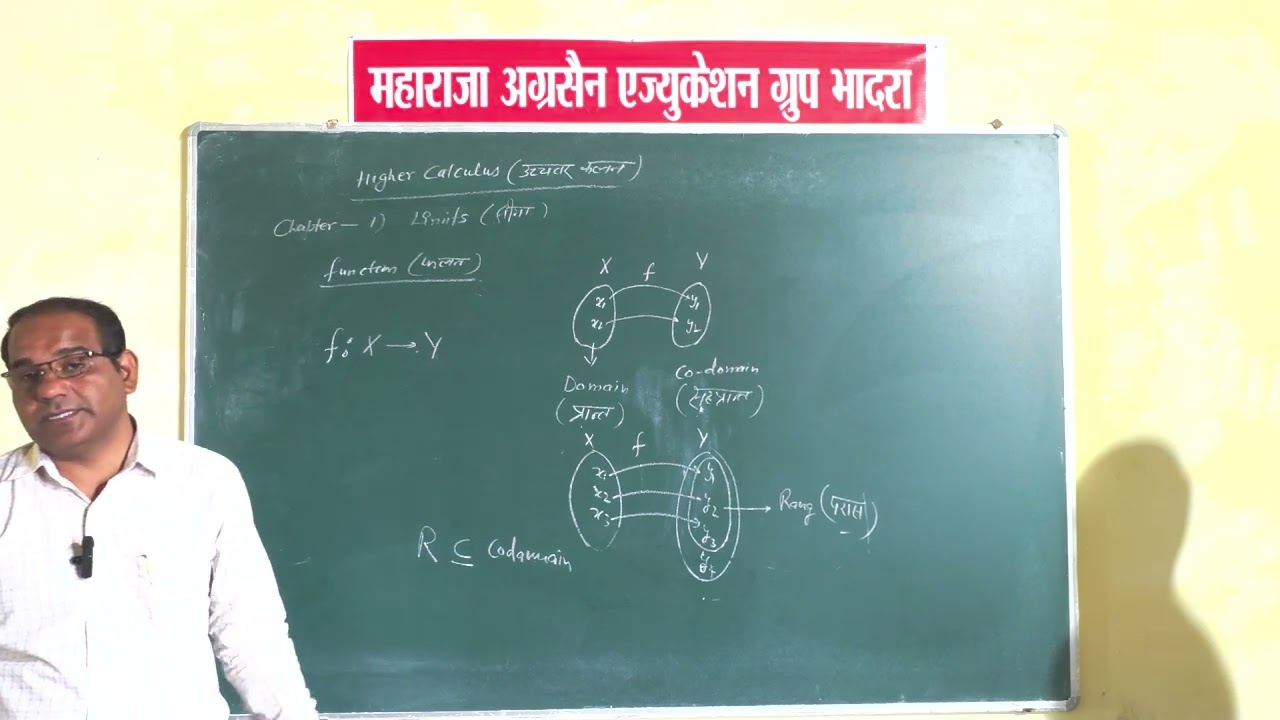 महाराजा अग्रसैन एज्युकेशन ग्रुप भादरा
Higher Calculus (उच्चतर कलन)
Chapter - 1) Limits (सीमा)
function (फलन)
X f Y
x₁ y₁
x₂ y₂
f: X → Y
Domain Co-domain
(प्रान्त) (सहप्रान्त)
X f Y
x₁ y₁
x₂ y₂
x₃ y₃
y₄
Rang (परास)
R ⊆ Codamain